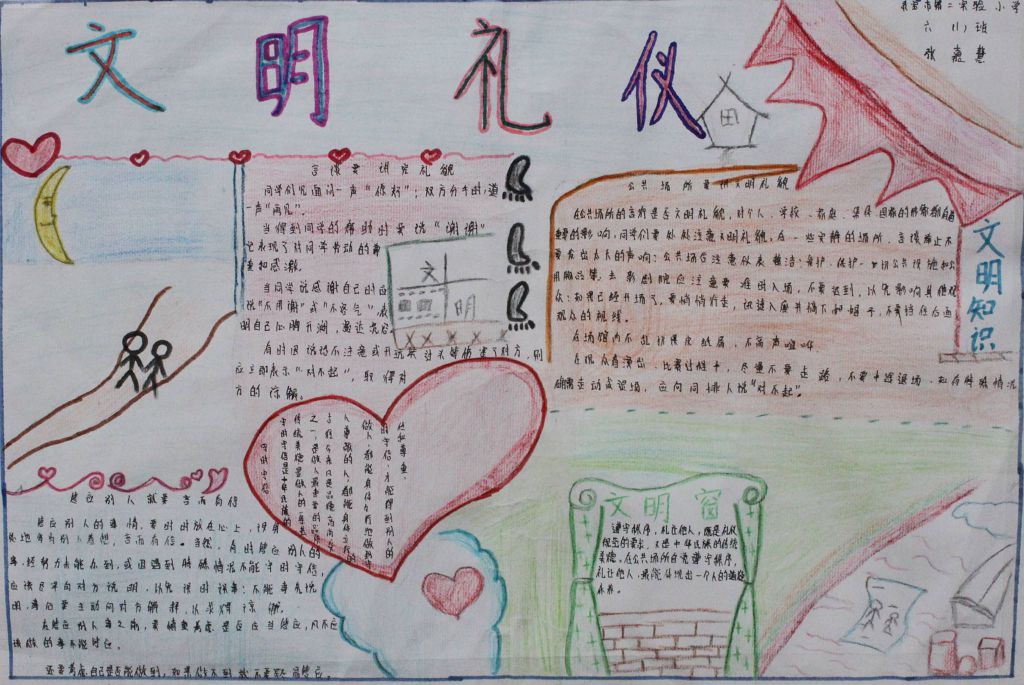 文明礼仪
市第二实验小学
六(1)班
张嘉慧
言谈要讲究礼貌
同学们见面问一声“你好”；双方分手时，道
一声“再见”。
当得到同学的帮助时要说“谢谢”
它表现了对同学劳动的尊
重和感激。
当同学说感谢自己的
说“不用谢”或“不客气”，表
明自己心胸开阔，
有时因说话不注意或开玩笑过头伤了对方，则
应立即表示“对不起”，取得对
方的谅解。
文
明
公共场所要讲文明礼貌
在公共场所的言行是否文明礼貌，对个人、学校、家庭、集体、国家的形象都有直
重要的影响，同学们要处处注意文明礼貌。在一些安静的场所，言谈举止不
要发出太大的声响；公共场合注意仪表整洁；爱护、保护一切公共设施和公
用物品等。去影剧院应注意要准时入场，不要迟到，以免影响其他观
众；如果已经开场了，要悄悄前走，迅速入座并摘下和帽子，不要挡住后面
观众的视线。
在场馆内不乱扔果皮纸屑，不高声喧哗。
在观众看演出、比赛过程中，尽量不要走路，不要中途退场，如有特殊情况
确需走动或退场，应向同排人说“对不起”。
文明知识
守时守信
守时守信是中华民族的
传统美德是做人的
之一，是做人最重要的品
言行
人尊敬的人，都能
做人，都能
时守信，才能得到别人的
信和尊重。
答应别人就要言而有信
答应别人的事情，要时时放在心上，设身
处地为别人着想，言而有信。当然，有时答应别人的
事，经努力未能办到，或因遇到特殊情况不能守时守信，
应该及早向对方说明，以免误时误事；不能事先说
明，事后要主动向对方解释，以求得谅解。
在答应别人事之前，要慎重考虑是否应当答应，凡不应
该做的事不能答应。
还要考虑自己是否能做到，如果做不到就不要轻易答应。
文明窗
遵守秩序，礼让他人，既是礼仪
规范的要求，又是中华民族的传统
美德。在公共场所自觉遵守秩序，
礼让他人，最能体现出一个人的道德
水准。